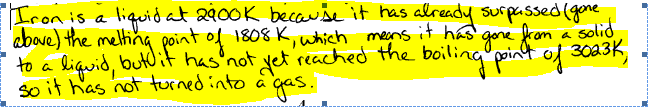 Iron is a liquid at 2900K because it has already surpassed (gone
above) the melting point of 1808K, which means it has gone from a solid
to a liquid, but it has not yet reached the boiling point of 3023K,
so it has not turned into a gas.